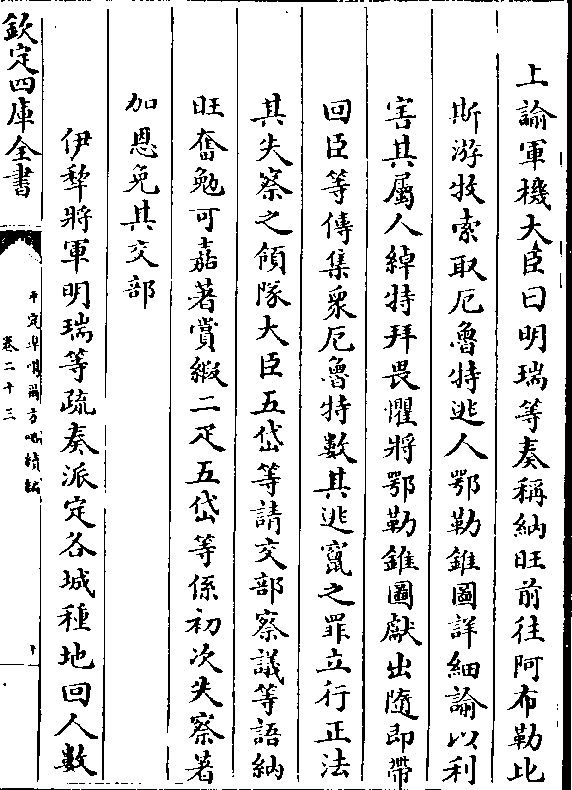 上諭軍機大臣曰明瑞等奏稱納旺前往阿布勒比
斯游牧索取厄魯特逃人鄂勒錐圖詳細諭以利
害其屬人綽特拜畏懼將鄂勒錐圖獻出隨即帶
回臣等傳集衆厄魯特數其逃竄之罪立行正法
其失察之領隊大臣五岱等請交部察議等語納
旺奮勉可嘉著賞緞二疋五岱等係初次失察著
加恩免其交部
伊犂將軍明瑞等疏奏派定各城種地回人數
欽定四庫全書
平定準噶爾方略續編
卷二十三